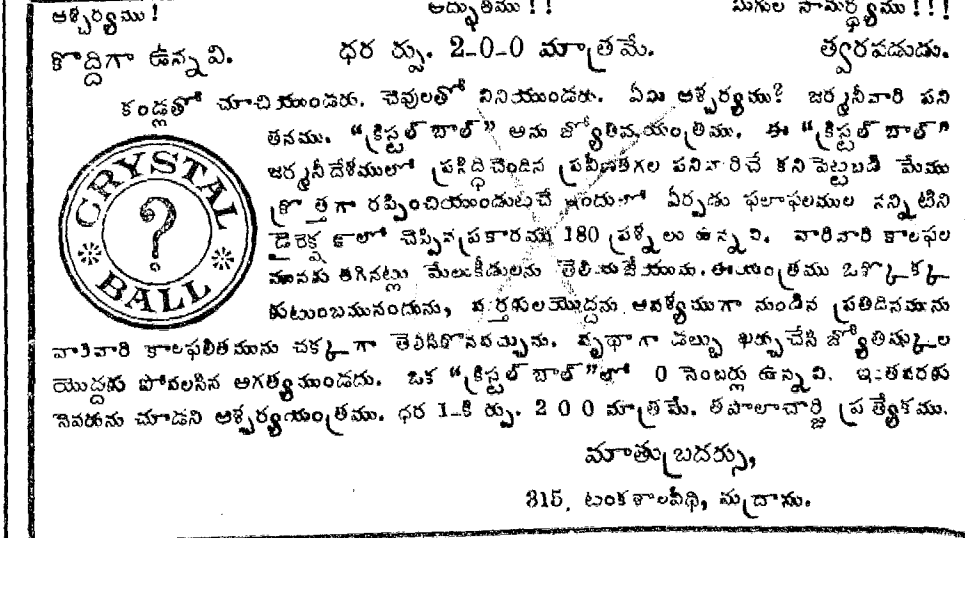 ఆశ్చర్యము! అద్భుతము!! మిగుల సామర్థ్యము!!!
కొద్దిగా ఉన్నవి. ధర ర్పు. 2-0-0 మాత్రమే. త్వరపడుడు.
కండ్లతో చూచియుండరు. చెవులతో వినియుండరు. ఏమి ఆశ్చర్యము? జర్మనీవారి పని
తనము. “క్రిస్టల్ బాల్” అను జ్యోతిషయంత్రము. ఈ “క్రిస్టల్ బాల్”
జర్మనీదేశములో ప్రసిద్ధిచెందిన ప్రవీణతగల పనివారిచే కనిపెట్టబడి మేము
క్రొత్తగా రప్పించియుండుటచే ఇందులో ఏర్పడు ఫలాఫలముల నన్నిటిని
డైరెక్షకాలో చెప్పినప్రకారము 180 ప్రశ్నలు ఉన్నవి. వారివారి కాలఫల
మునకు తగినట్లు మేలుకీడులను తెలియజేయును. ఈయంత్రము ఒక్కొక్క
కుటుంబమునందును, వర్తకులయొద్దను ఆవశ్యముగా నుండిన ప్రతిదినమును
వారివారి కాలఫలితమును చక్కగా తెలిసికొనవచ్చును. వృథాగా డబ్బు ఖర్చుచేసి జ్యోతిష్కుల
యొద్దకు పోవలసిన అగత్యముండదు. ఒక “క్రిస్టల్ బాల్”లో 0 నెంబర్లు ఉన్నవి. ఇంతవరకు
నెవరును చూడని ఆశ్చర్యయంత్రము. ధర 1-కి ర్పు. 2 0 0 మాత్రమే. తపాలాచార్జి ప్రత్యేకము.
CRYSTAL
?
BALL
మాతృబ్రదర్సు,
315, టంకశాలవీథి, మద్రాసు.